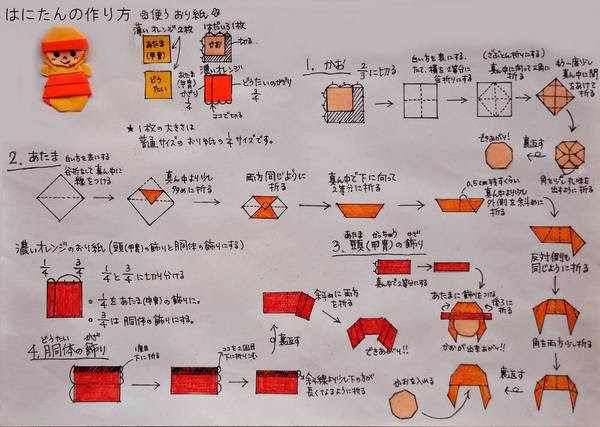 はにたんの作り方
✿使う おり紙✿
薄いオレンジ2枚
あたま
(甲冑)
どう
たい
はだいろ1枚
かお
切る。
濃いオレンジ
あたま
(甲冑)
かざり
1/4
どうたいのかざり
3/4
ココで切る
★1枚の大きさは
普通サイズのおり紙の1/4サイズです。
1. かお
2/3に切る。
白い方を表にする。
たて、横を2等分に
谷折りにする
(ざぶとん折りにする)
真ん中に向って2角に
折る
もう一度少し
真ん中に間
をあけて
折る
角を少し丸味を
出すように折る
裏返す
できあがり!
2. あたま
白い方を表にする
谷折をして真ん中に
線をつける
真ん中より少し
多めに折る
両方同じように
折る
真ん中で下に向って
2等分に折る
0.5cm残すくらい
真ん中より少し
外側を斜めに
折る
反対側も
同じように折る
角を両方少し折る
裏返す
かおを入れる
あたまに飾りをつける
後3に
折る
かおが出来あがり!!
濃いオレンジのおり紙(頭(甲冑)の飾りと胴体の飾りにする)
1/4
3/4
1/4と3/4に切り分ける
1/4をあたま(甲冑)の飾りに。
3/4は胴体の飾りにする。
3. 頭(甲冑)の飾り
あたま かっちゅう かざ
真ん中で2等分に折る
斜めに両方
を折る
裏返す
できあがり!!
4. 胴体の飾り
どうたい かざ
1回目
下に折る
ココを2回目
下に折りこむ
斜線より少し下の方が
長くなるように折る